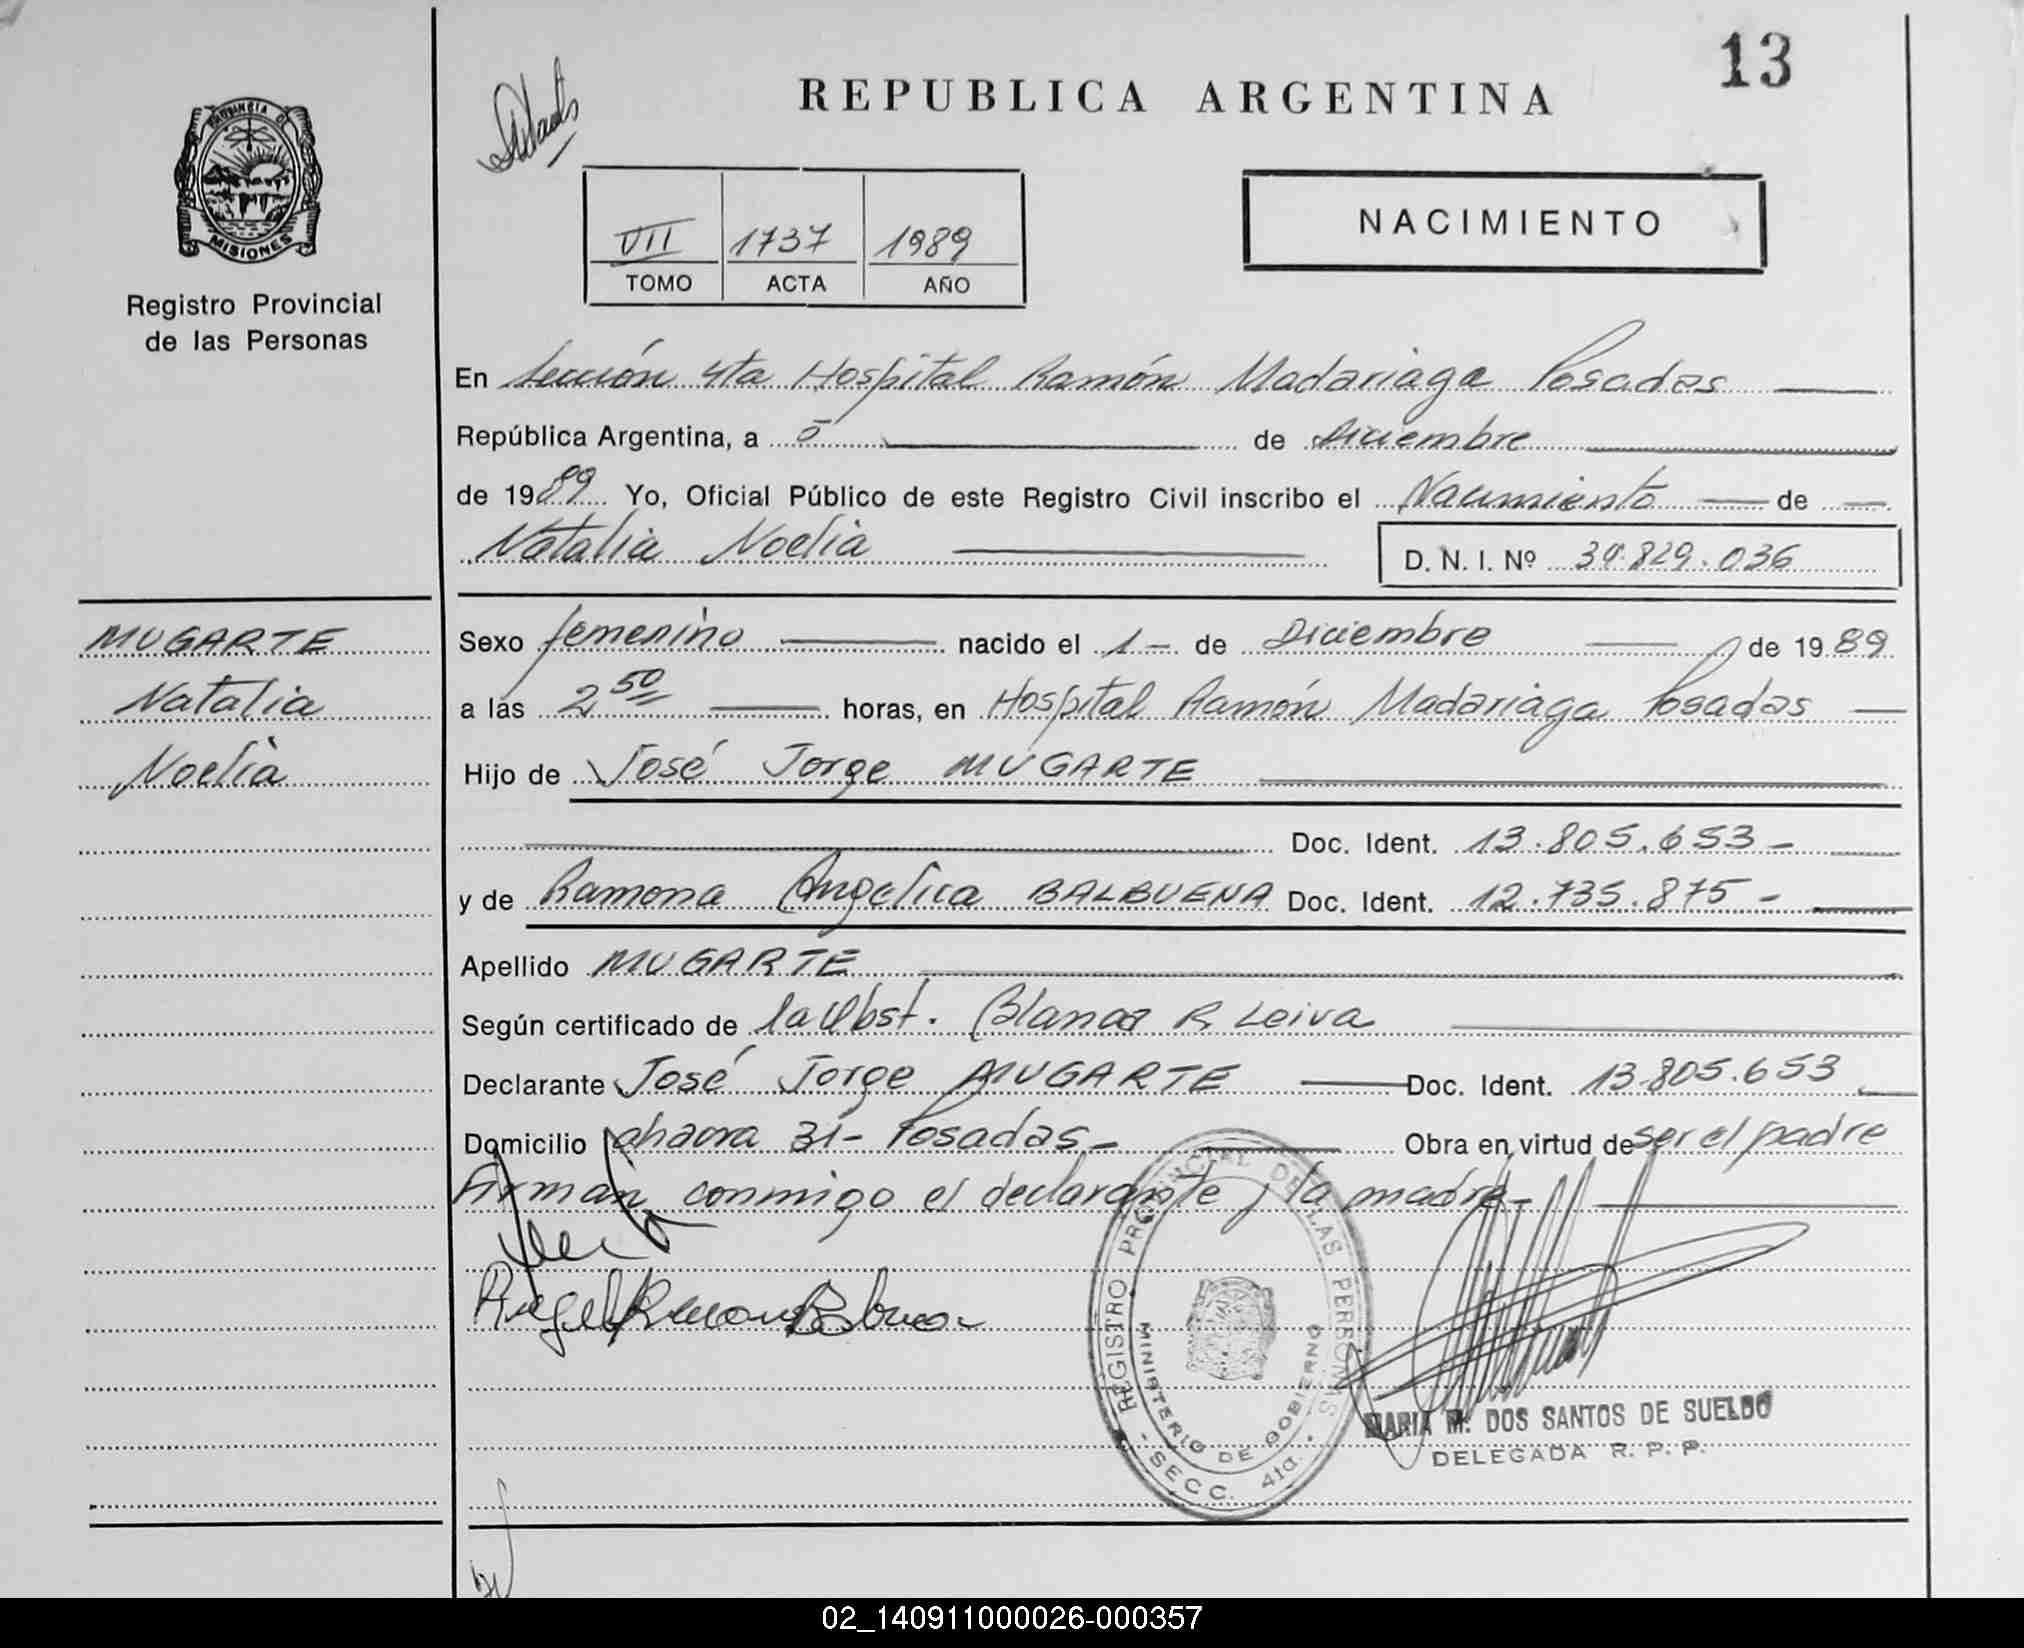 13
REPUBLICA ARGENTINA
PROVINCIA DE
MISIONES
Registro Provincial
de las Personas
VII 1737 1989
TOMO ACTA AÑO
NACIMIENTO
En Sección 4ta Hospital Ramón Madariaga Posadas
República Argentina, a 5 de Diciembre
de 1989 Yo, Oficial Público de este Registro Civil inscribo el Nacimiento de
Natalia Noelia
D. N. I. Nº 34.829.036
MUGARTE
Natalia
Noelia
Sexo femenino nacido el 1- de Diciembre de 1989
a las 2,50 horas, en Hospital Ramón Madariaga Posadas
Hijo de José Jorge MUGARTE
Doc. Ident. 13.805.653-
y de Ramona Angelica BALBUENA Doc. Ident. 12.735.875-
Apellido MUGARTE
Según certificado de la Obst. Blanca R Leiva
Declarante José Jorge MUGARTE Doc. Ident. 13.805.653
Domicilio 31- Posadas- Obra en virtud de ser el padre
Firman conmigo el declarante y la madre-
REGISTRO PROVINCIAL DE LAS PERSONAS
MINISTERIO DE GOBIERNO
- SECC. 4ta. -
MARIA M. DOS SANTOS DE SUELDO
DELEGADA R. P. P.
02_140911000026-000357